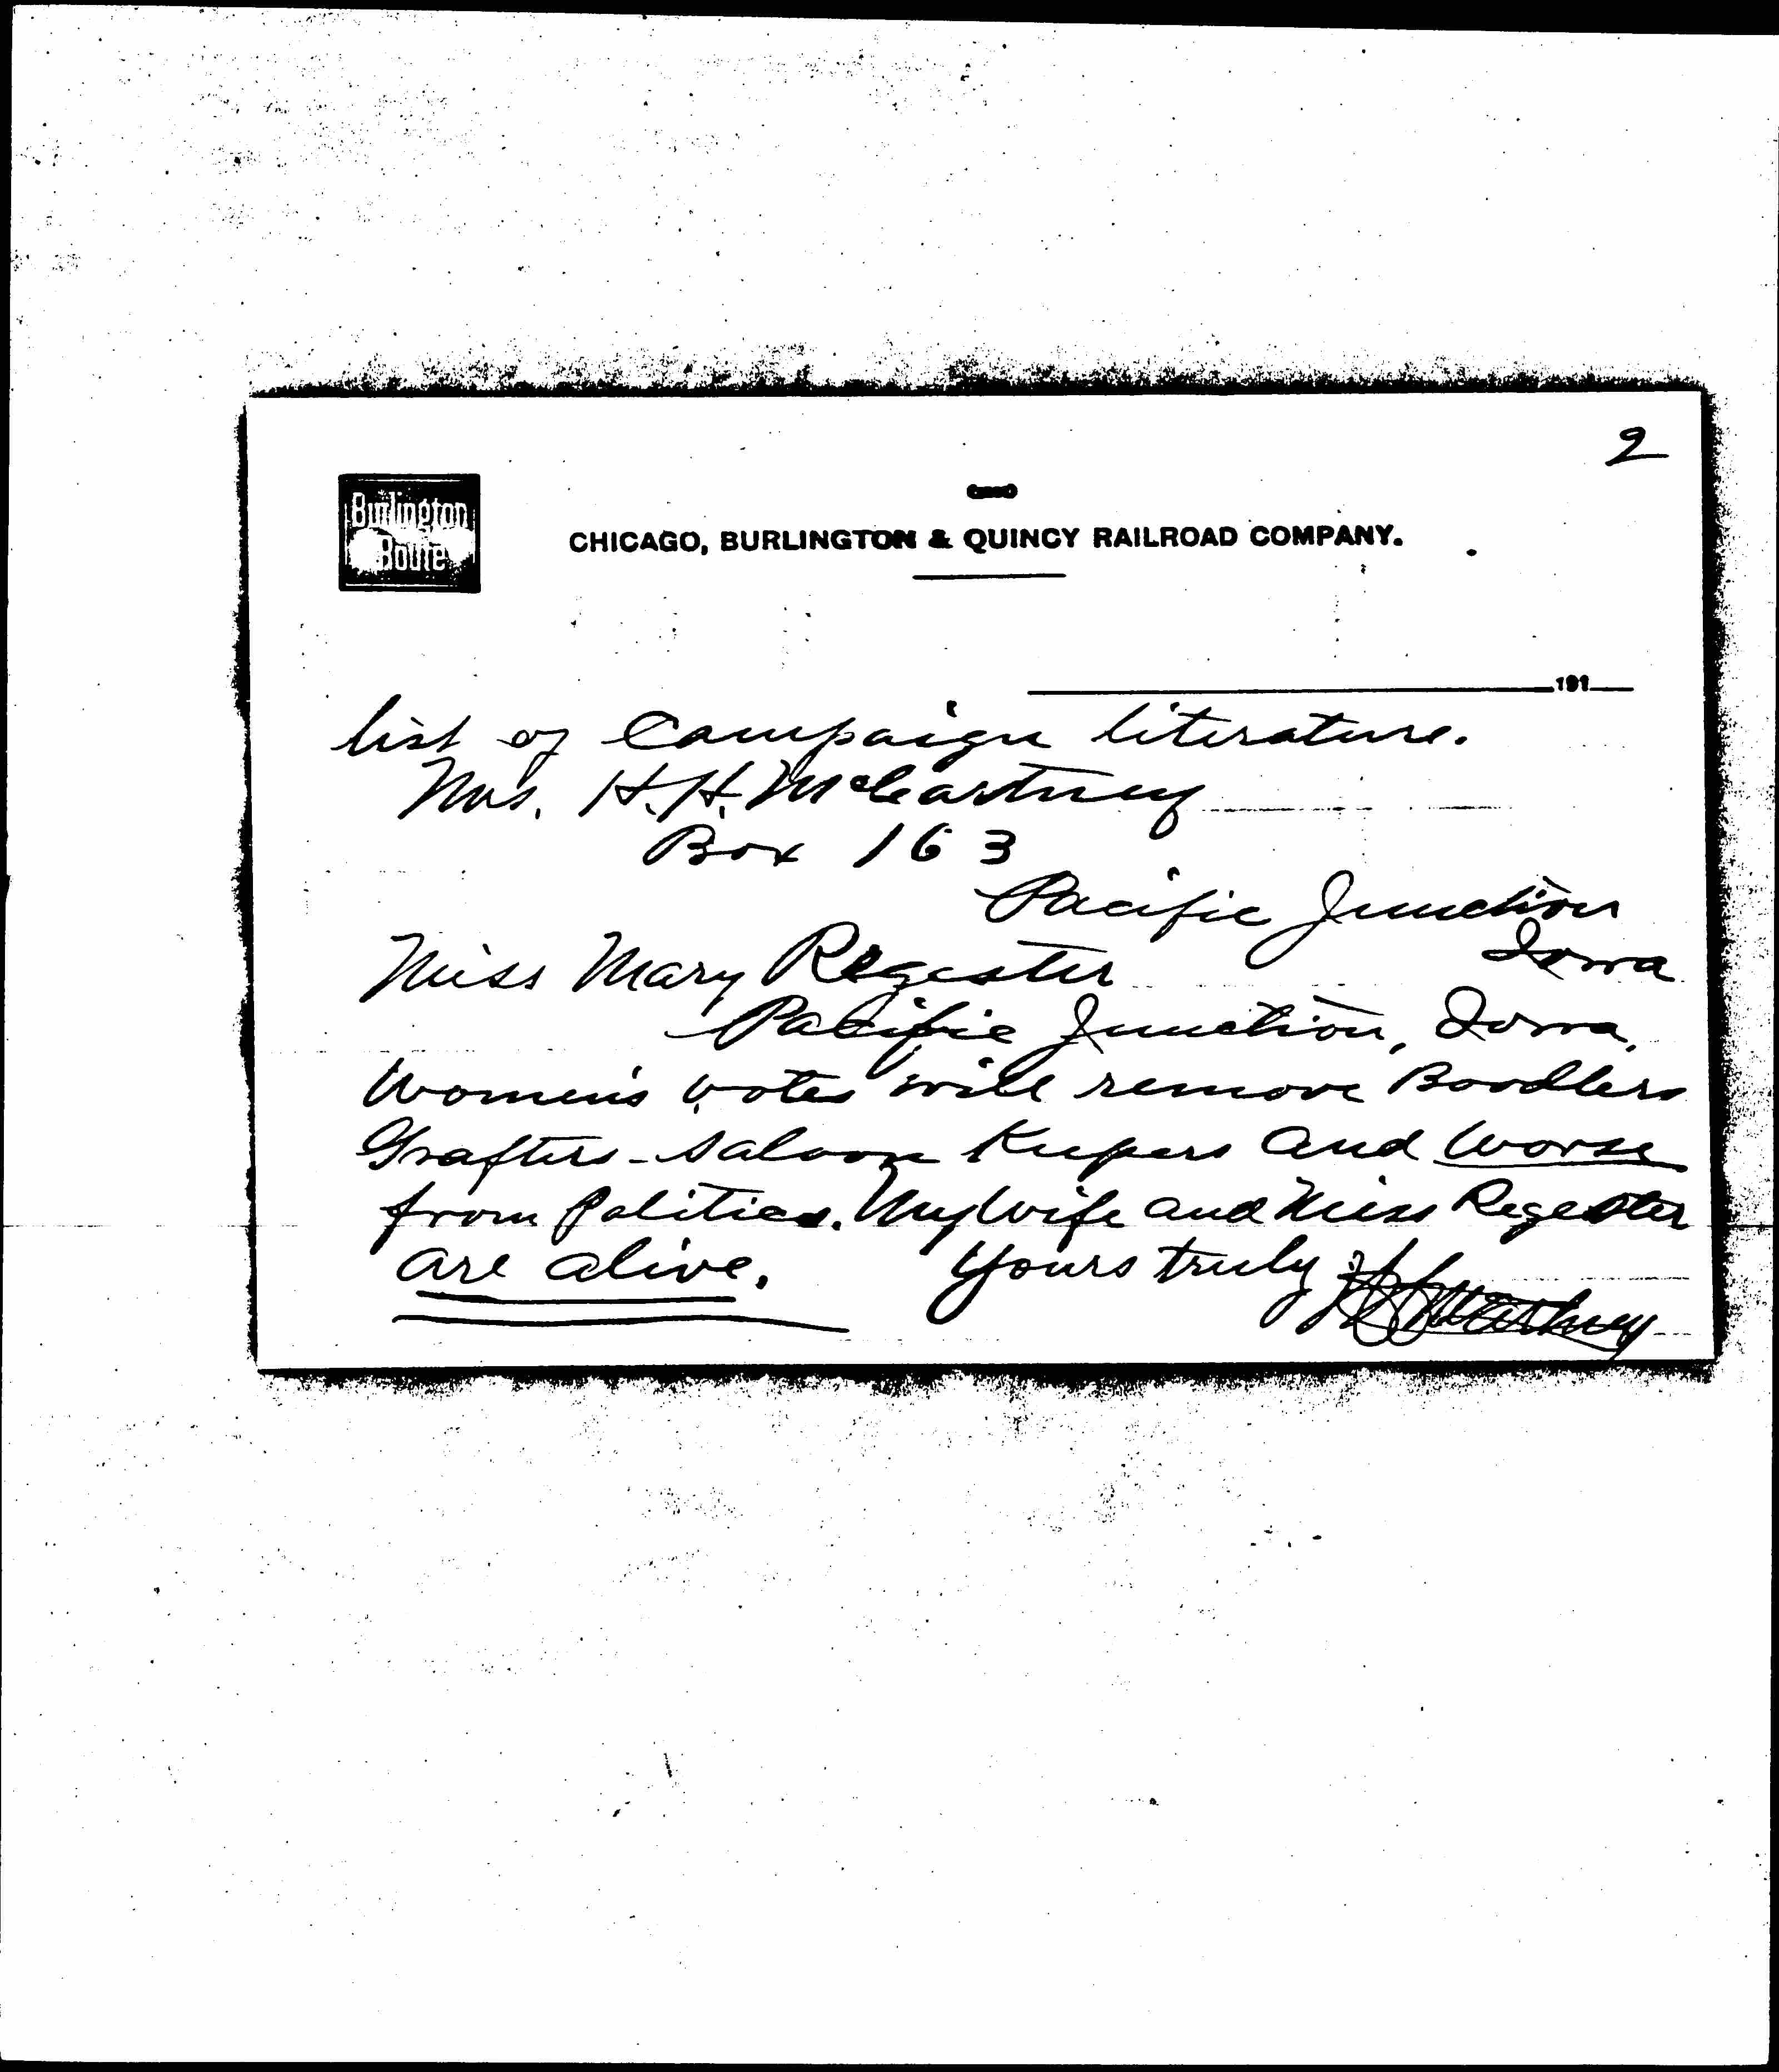 2
Burlington
Route
CHICAGO, BURLINGTON & QUINCY RAILROAD COMPANY.
191
list of Campaign literature.
Mrs. H. H. McCartney
Box 163
Pacific Junction
Iowa
Miss Mary Regester
Pacific Junction, Iowa.
Women's votes will remove Boodlers
Grafters - Saloon Keepers and Worse
from Politics. My Wife and Miss Regester
are alive. Yours truly
H H McCartney